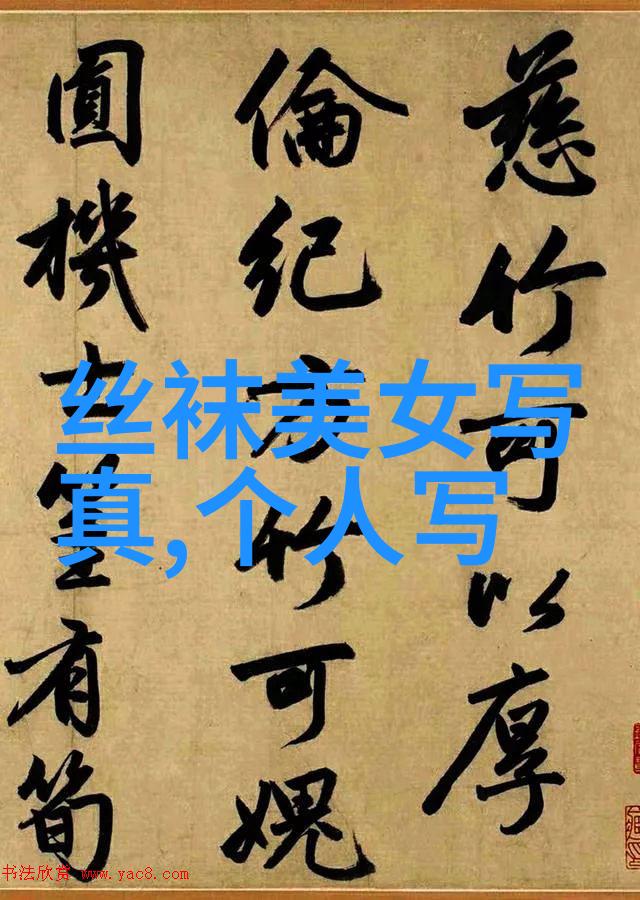 慈竹可以厚
倫紀方竹可媿
圓機士有筍
丝袜美女写
真,个人写
书法欣赏 www.yac8.com